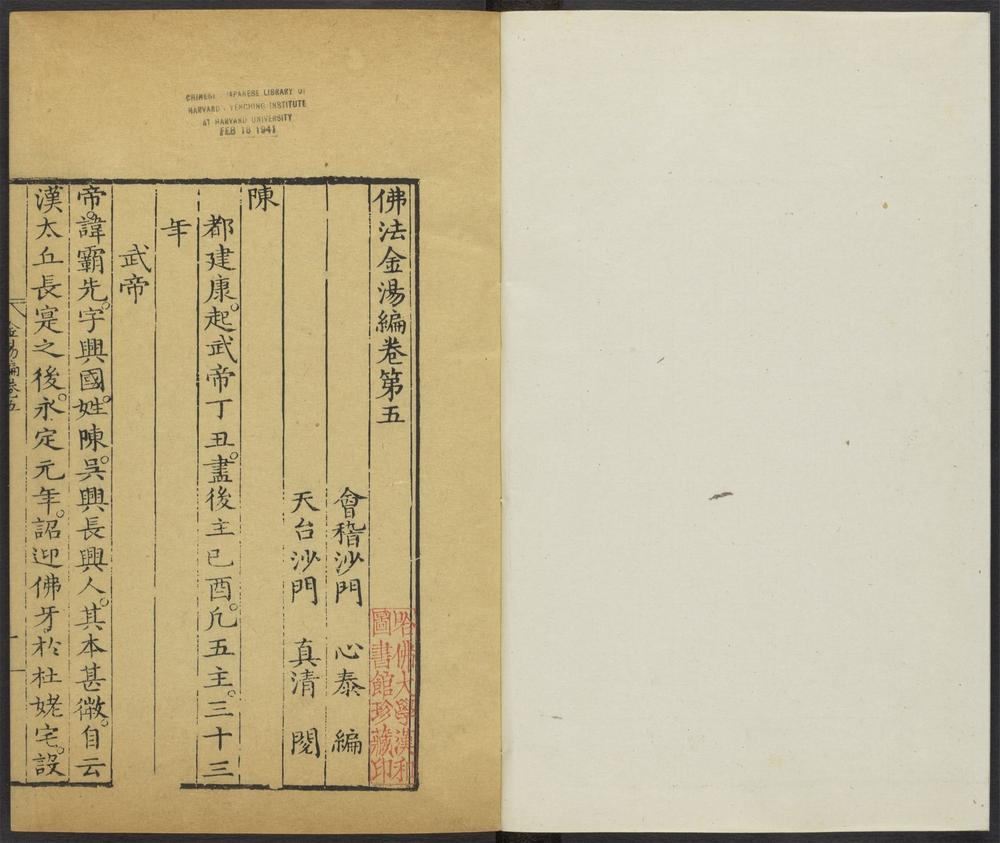 CHINESE-JAPANESE LIBRARY OF
HARVARD-YENCHING INSTITUTE
AT HARVARD UNIVERSITY
FEB 18 1941
佛法金湯編卷第五
會稽沙門 心泰 編
天台沙門 真清 閱
陳
都建康。起武帝丁丑。盡後主巳酉。凡五主。三十三
年
武帝
帝諱霸先。字興國。姓陳。吳興長興人。其本甚微。自云
漢太丘長寔之後。永定元年。詔迎佛牙於杜姥宅。設
金湯編卷五
一
哈佛大學漢和
圖書館珍藏印